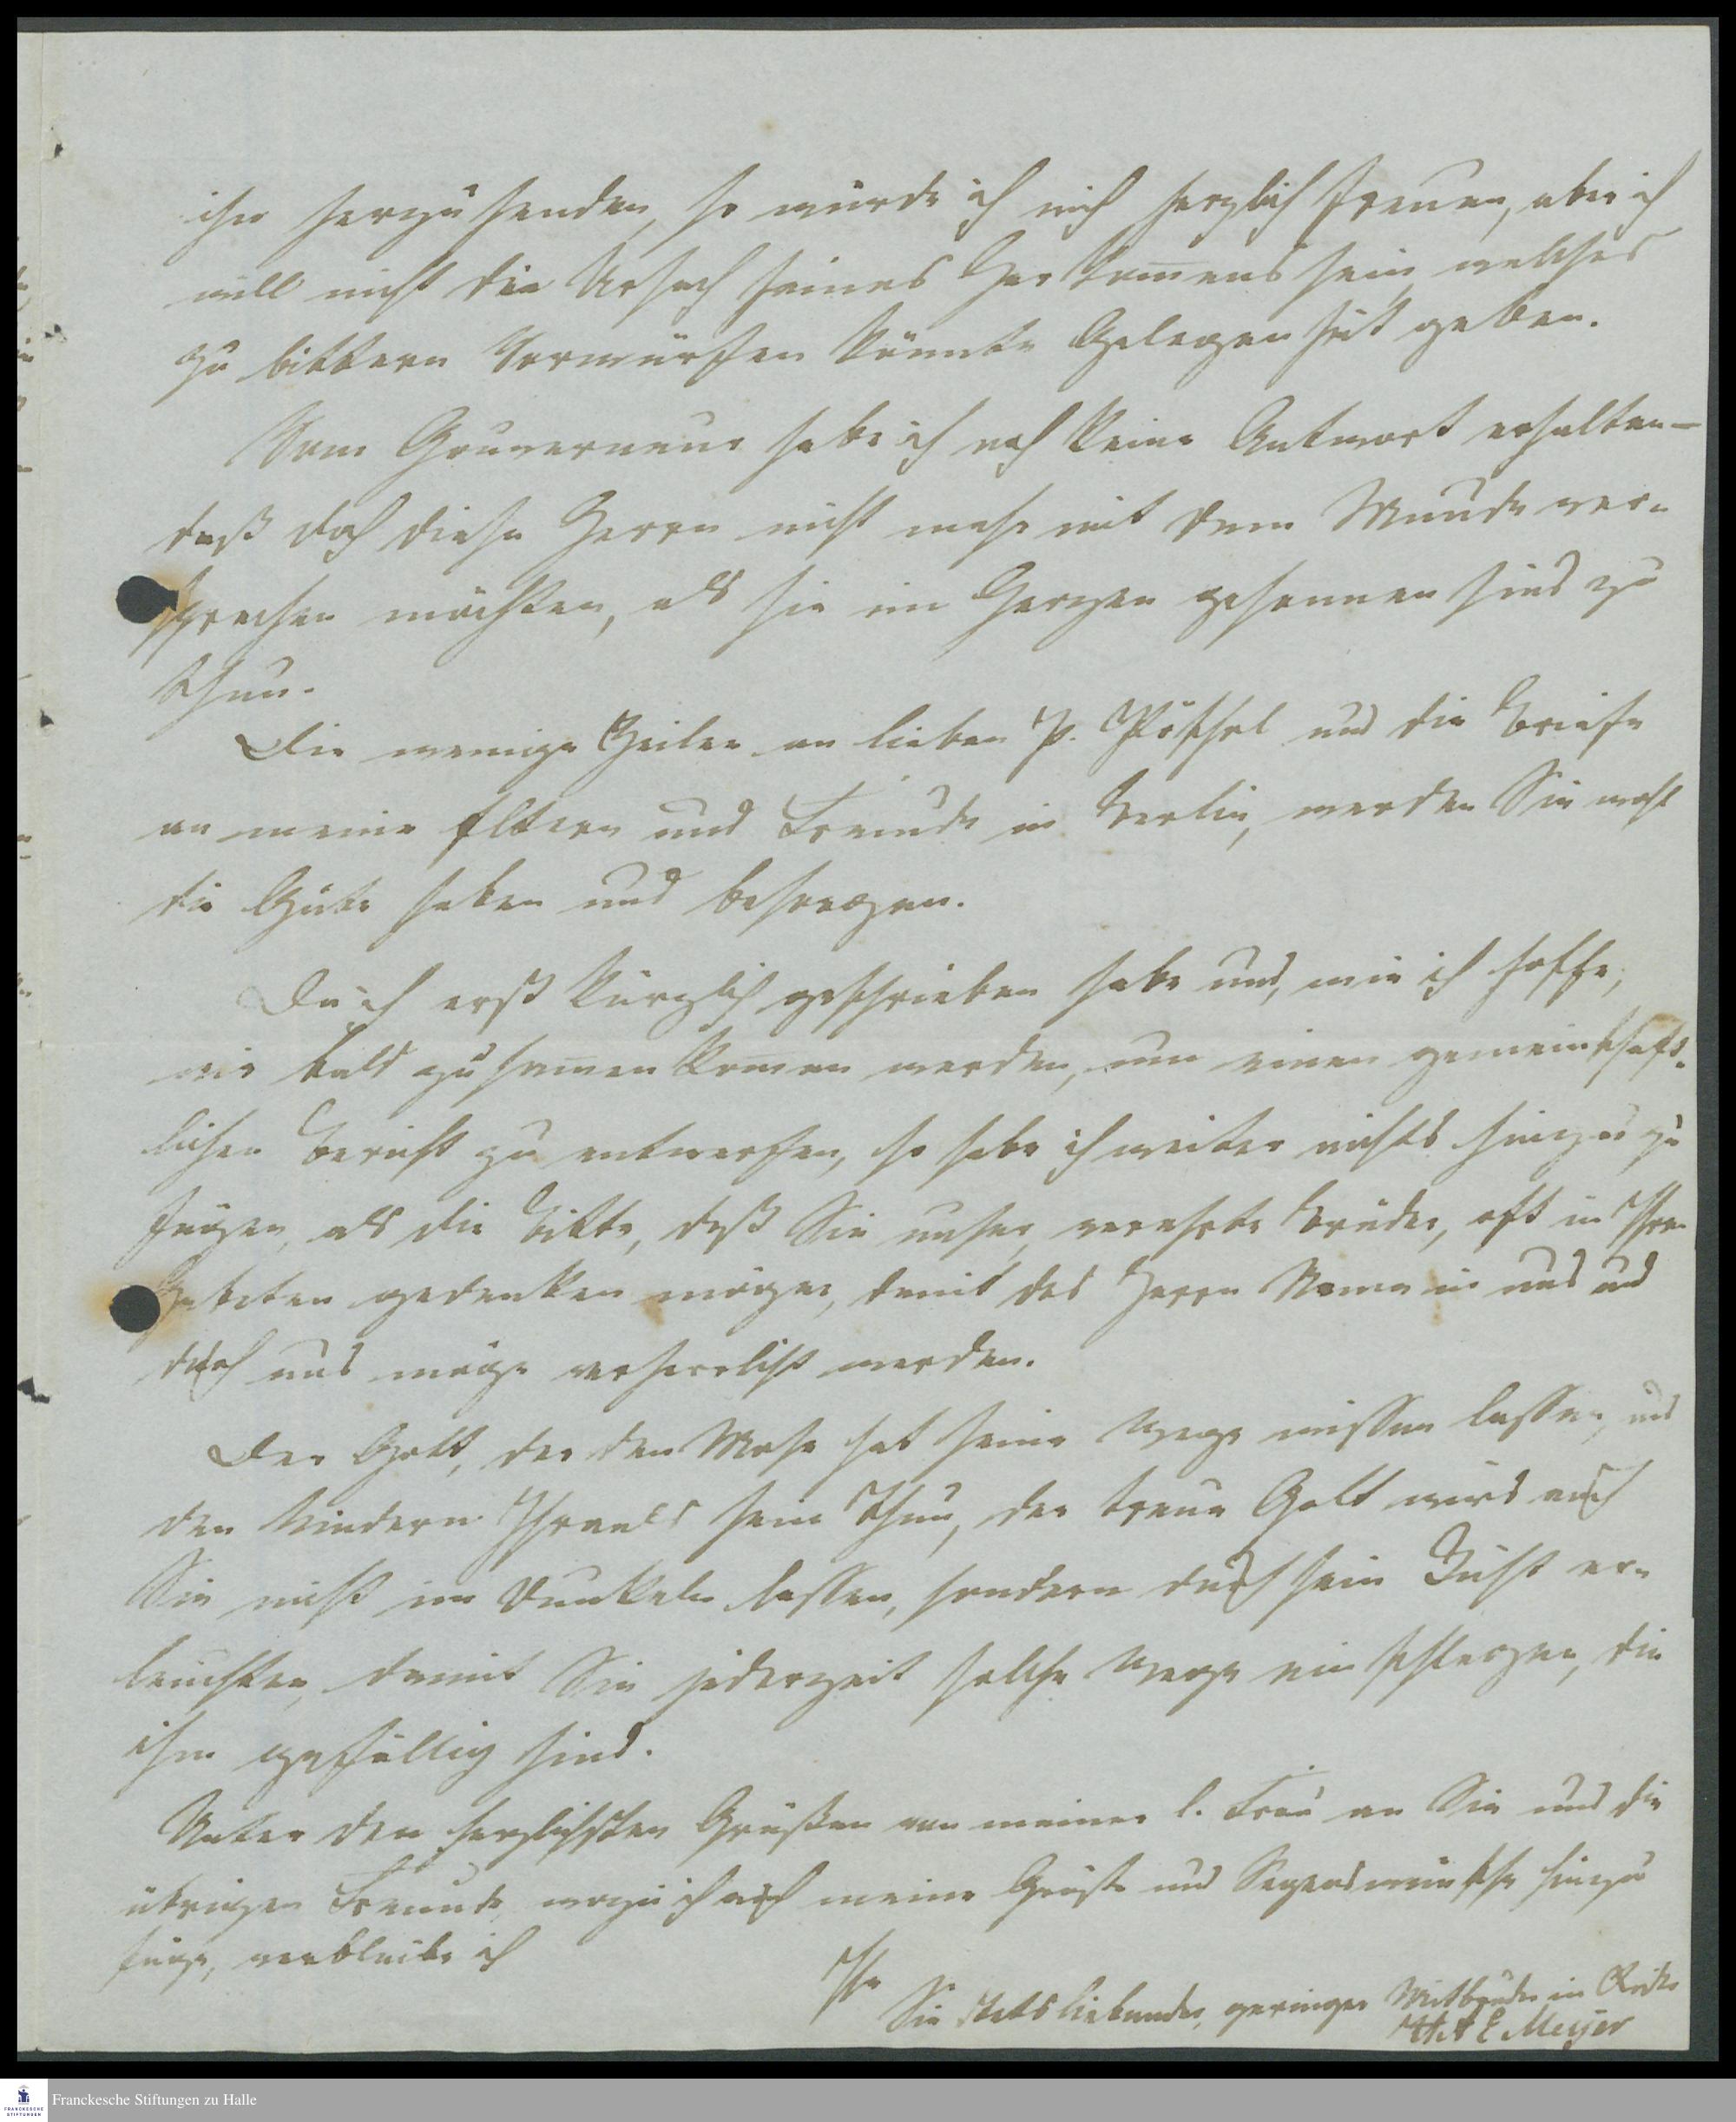 ihn herzusenden, so würde ich mich herzlich freuen, aber ich
will nicht die Ursach seines Herkom̄ens sein, welches
zu bittern Vorwürfen könnte Gelegenheit geben.
Vom Gouverneur habe ich noch keine Antwort erhalten –
daß doch diese Herrn nicht mehr mit dem Munde ver-
sprechen möchten, als sie im Herzen gesonnen sind zu
thun.
Die wenige Zeilen an lieben P. und die Briefe
an meine Eltern und Freunde in Berlin, werden Sie wohl
die Güte haben und besorgen.
Da ich erst kürzlich geschrieben habe und, wie ich hoffe,
wir bald zusam̄enkom̄en werden, um einen gemeinschaft-
lichen Bericht zu entwerfen, so habe ich weiter nichts hinzu zu
fügen, als die Bitte, daß Sie unser, verehrte Brüder, oft in Ihren
Gebeten gedenken mögen, damit des Herrn Name in uns und
durch uns möge verherrlicht werden.
Der Gott, der den Mose hat seine Wege wissen lassen, und
den Kindern Israels sein Thun, der treue Gott wird auch
Sie nicht im Dunkeln lassen, sondern durch sein Licht er-
leuchten, damit Sie jederzeit solche Wege einschlagen, die
ihm gefällig sind.
Unter den herzlichsten Grüßen von meiner l. Frau an Sie und die
übrigen Freunde, wozu ich auch meine Grüße und Segenswünsche hinzu
füge, verbleibe ich
Ihr
Sie stets liebender, geringer Mitbruder in Christo
E Meyer
Franckesche Stiftungen zu Halle
FRANCKESCHE
STIFTUNGEN